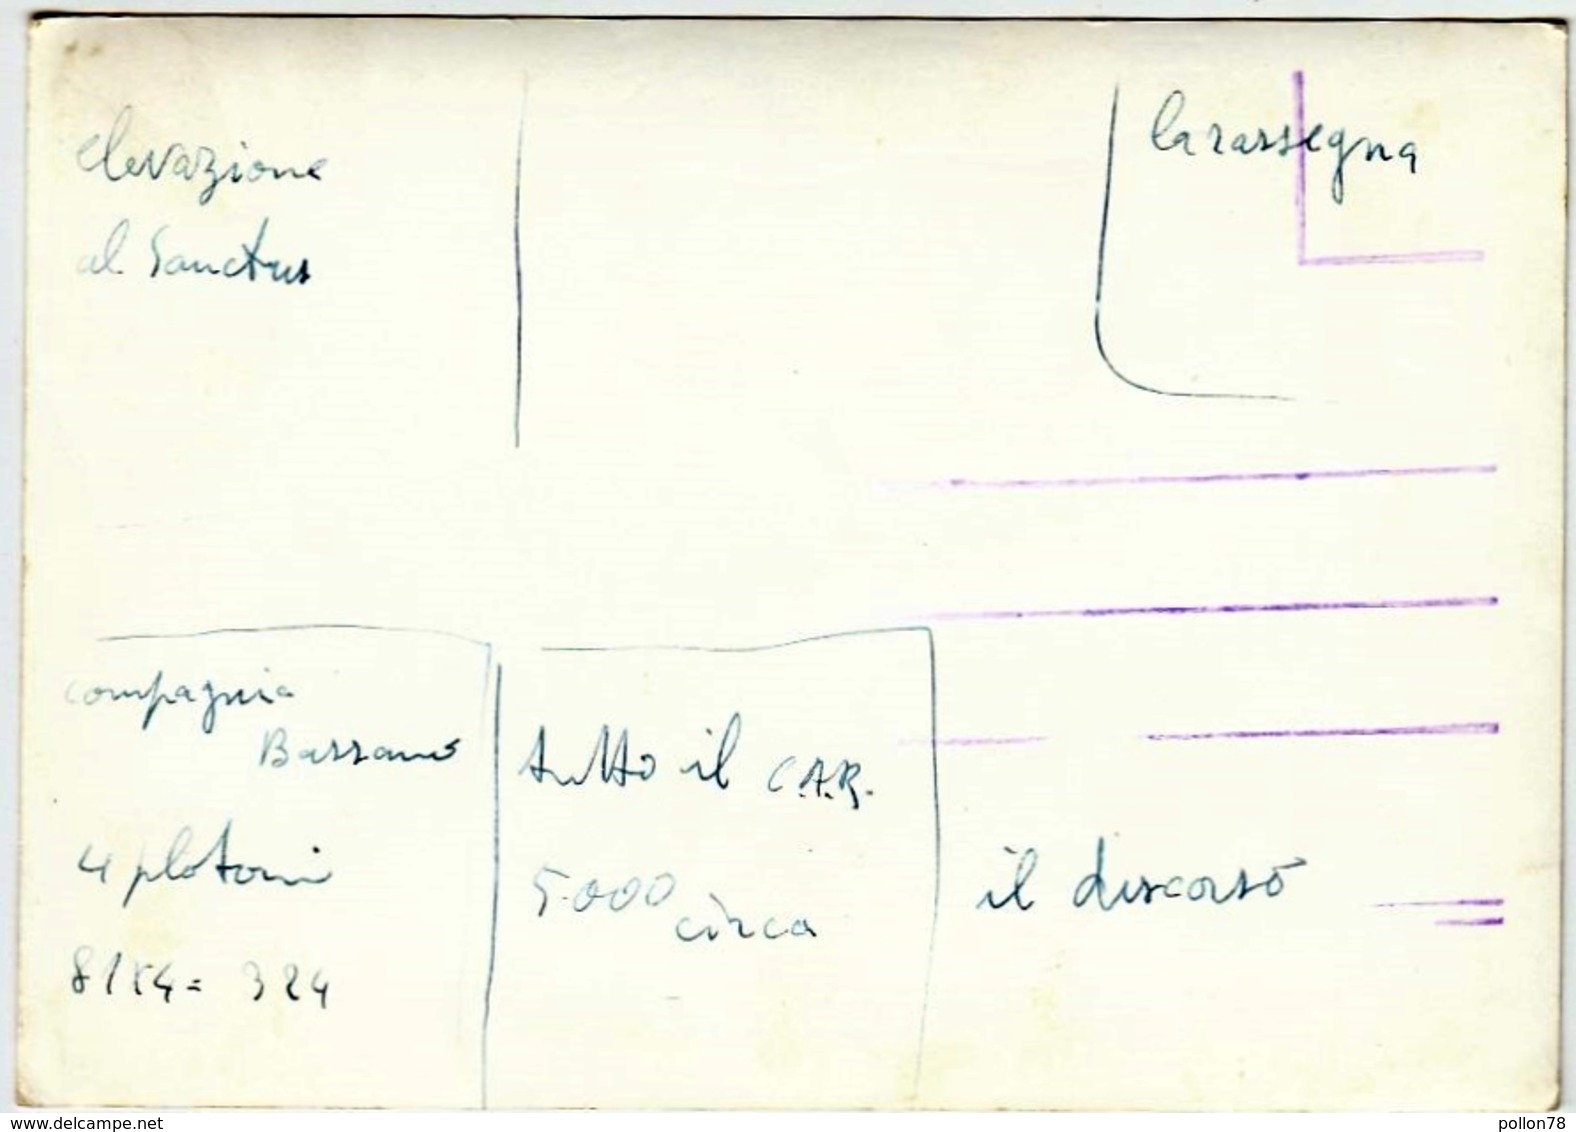 elevazione
al Sanctus
la rassegna
compagnia
Bassano
4 plotoni
81x4= 324
tutto il C.A.R.
5.000
circa
il discorso
www.delcampe.net
pollon78